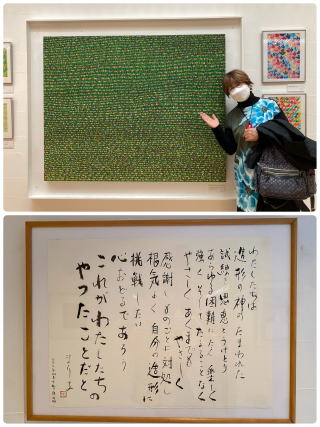 わたしたちは
造形の神のたまわれた
試練の恩恵をうけとり
あらゆる困難にたくましく
強く そしてたゆることなく
やさしくあくまでも
やさしく
感謝しものごとに対処し
根気よく自分の造形に
挑戦したい
心おどるであろう
これがわたしたちの
やったことだと